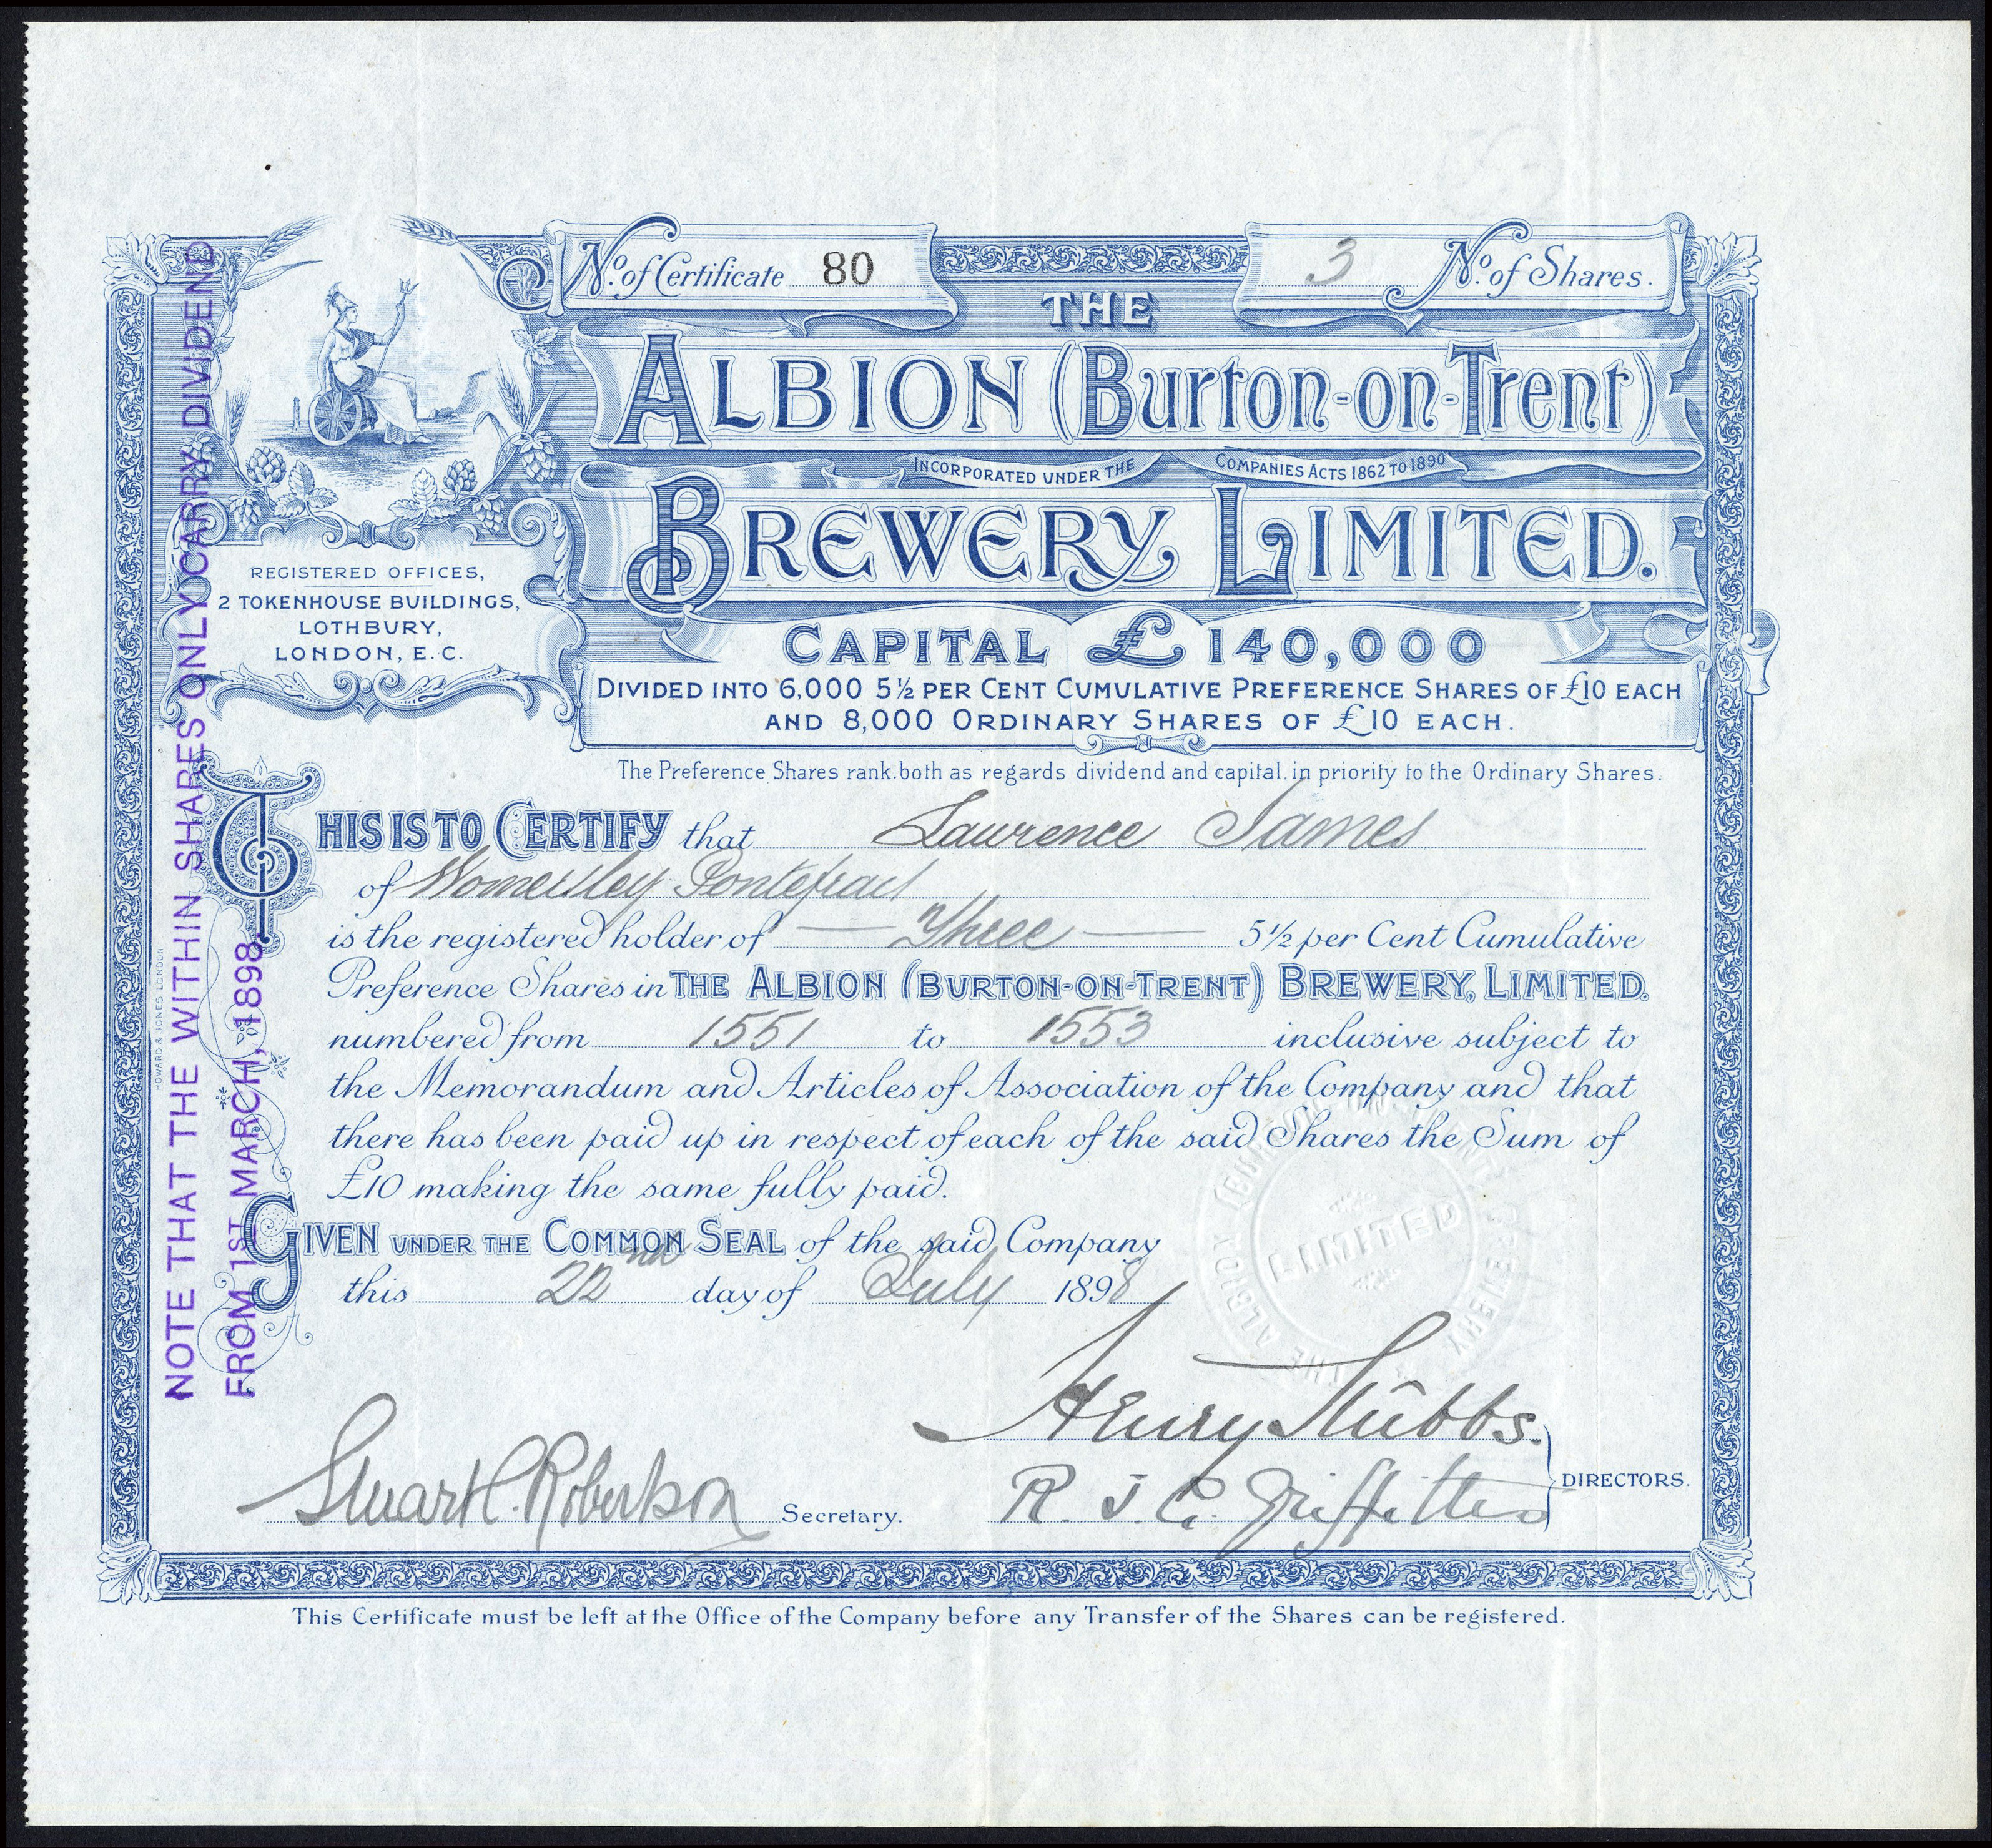 No. of Certificate 80
3 No. of Shares.
THE
ALBION (Burton-on-Trent)
INCORPORATED UNDER THE COMPANIES ACTS 1862 TO 1890
BREWERY LIMITED.
REGISTERED OFFICES,
2 TOKENHOUSE BUILDINGS,
LOTHBURY,
LONDON, E.C.
CAPITAL £ 140,000
DIVIDED INTO 6,000 5½ PER CENT CUMULATIVE PREFERENCE SHARES OF £10 EACH
AND 8,000 ORDINARY SHARES OF £10 EACH.
The Preference Shares rank, both as regards dividend and capital, in priority to the Ordinary Shares.
THIS IS TO CERTIFY that Lawrence James
of Womersley Pontefract
is the registered holder of — Three — 5½ per Cent Cumulative
Preference Shares in THE ALBION (BURTON-ON-TRENT) BREWERY, LIMITED.
numbered from 1551 to 1553 inclusive subject to
the Memorandum and Articles of Association of the Company and that
there has been paid up in respect of each of the said Shares the Sum of
£10 making the same fully paid.
GIVEN UNDER THE COMMON SEAL of the said Company
this 22nd day of July 1898
THE ALBION (BURTON-ON-TRENT) BREWERY
LIMITED
Henry Stubbs.
Stuart C. Robertson Secretary.
R. J. C. Griffiths
DIRECTORS.
This Certificate must be left at the Office of the Company before any Transfer of the Shares can be registered.
HOWARD & JONES LONDON
NOTE THAT THE WITHIN SHARES ONLY CARRY DIVIDEND
FROM 1ST MARCH, 1898